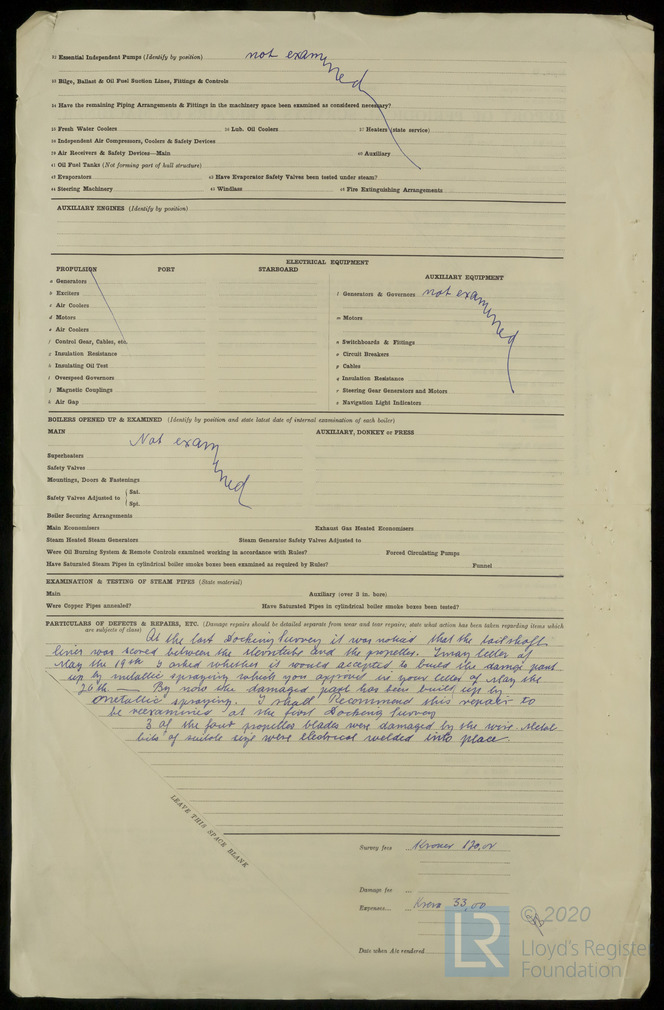 32 Essential Independent Pumps (Identify by position) not examined
33 Bilge, Ballast & Oil Fuel Suction Lines, Fittings & Controls
34 Have the remaining Piping Arrangements & Fittings in the machinery space been examined as considered necessary?
35 Fresh Water Coolers 36 Lub. Oil Coolers 37 Heaters (state service)
38 Independent Air Compressors, Coolers & Safety Devices
39 Air Receivers & Safety Devices—Main 40 Auxiliary
41 Oil Fuel Tanks (Not forming part of hull structure)
42 Evaporators 43 Have Evaporator Safety Valves been tested under steam?
44 Steering Machinery 45 Windlass 46 Fire Extinguishing Arrangements
AUXILIARY ENGINES (Identify by position)
ELECTRICAL EQUIPMENT
PROPULSION PORT STARBOARD
AUXILIARY EQUIPMENT
a Generators
b Exciters
c Air Coolers
d Motors
e Air Coolers
f Control Gear, Cables, etc.
g Insulation Resistance
h Insulating Oil Test
i Overspeed Governors
j Magnetic Couplings
k Air Gap
l Generators & Governors not examined
m Motors
n Switchboards & Fittings
o Circuit Breakers
p Cables
q Insulation Resistance
r Steering Gear Generators and Motors
s Navigation Light Indicators
BOILERS OPENED UP & EXAMINED (Identify by position and state latest date of internal examination of each boiler)
MAIN Not examined AUXILIARY, DONKEY or PRESS
Superheaters
Safety Valves
Mountings, Doors & Fastenings
Safety Valves Adjusted to { Sat.
Spt.
Boiler Securing Arrangements
Main Economisers Exhaust Gas Heated Economisers
Steam Heated Steam Generators Steam Generator Safety Valves Adjusted to
Were Oil Burning System & Remote Controls examined working in accordance with Rules? Forced Circulating Pumps
Have Saturated Steam Pipes in cylindrical boiler smoke boxes been examined as required by Rules? Funnel
EXAMINATION & TESTING OF STEAM PIPES (State material)
Main Auxiliary (over 3 in. bore)
Were Copper Pipes annealed? Have Saturated Pipes in cylindrical boiler smoke boxes been tested?
PARTICULARS OF DEFECTS & REPAIRS, ETC. (Damage repairs should be detailed separately from wear and tear repairs; state what action has been taken regarding items which
are subjects of class)
At the last Docking Survey it was noticed that the tailshaft
liner was scored between the sterntube and the propeller. In my letter of
May the 19th I asked whether it would accepted to build the damage part
up by metallic spraying which you approved in your letter of May the
26th — By now the damaged part has been build up by
metallic spraying. I shall Recommend this repair to
be reexamined at the first Docking Survey
3 of the four propeller blades were damaged by the wire. Metal
bits of suitable size were electrical welded into place.
LEAVE THIS SPACE BLANK
Survey fees Kroner
Damage fee
Expenses Kroner 33,00
Date when A/c rendered
© 2020
LR
Lloyd's Register
Foundation